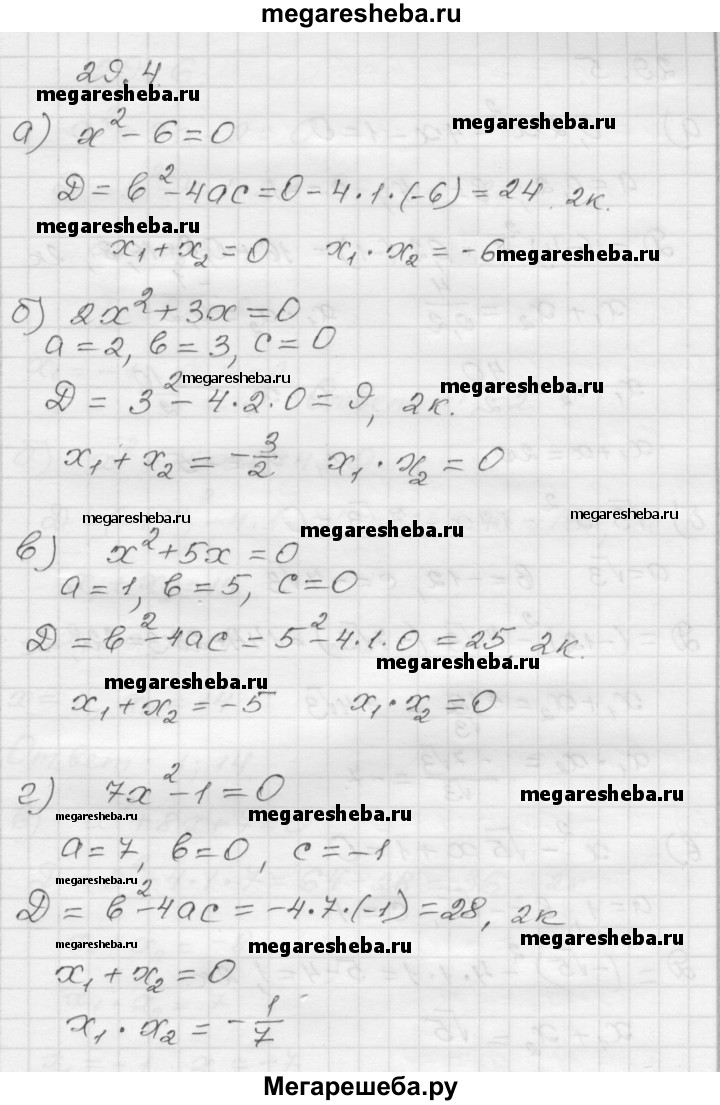 megaresheba.ru
29.4
megaresheba.ru
а) x² - 6 = 0 megaresheba.ru
Д = в² - 4ас = 0 - 4·1·(-6) = 24. 2к.
megaresheba.ru
x₁ + x₂ = 0 x₁ · x₂ = -6 megaresheba.ru
б) 2x² + 3x = 0
а = 2, в = 3, с = 0
megaresheba.ru megaresheba.ru
Д = 3² - 4·2·0 = 9, 2к.
x₁ + x₂ = -3/2 x₁ · x₂ = 0
megaresheba.ru megaresheba.ru megaresheba.ru
в) x² + 5x = 0
а = 1, в = 5, с = 0
Д = в² - 4ас = 5² - 4·1·0 = 25, 2к.
megaresheba.ru megaresheba.ru
x₁ + x₂ = -5 x₁ · x₂ = 0
г) 7x² - 1 = 0 megaresheba.ru
megaresheba.ru megaresheba.ru
а = 7, в = 0, с = -1 megaresheba.ru
megaresheba.ru
Д = в² - 4ас = -4·7·(-1) = 28, 2к
megaresheba.ru megaresheba.ru megaresheba.ru
x₁ + x₂ = 0
x₁ · x₂ = -1/7
Мегарешеба.ру